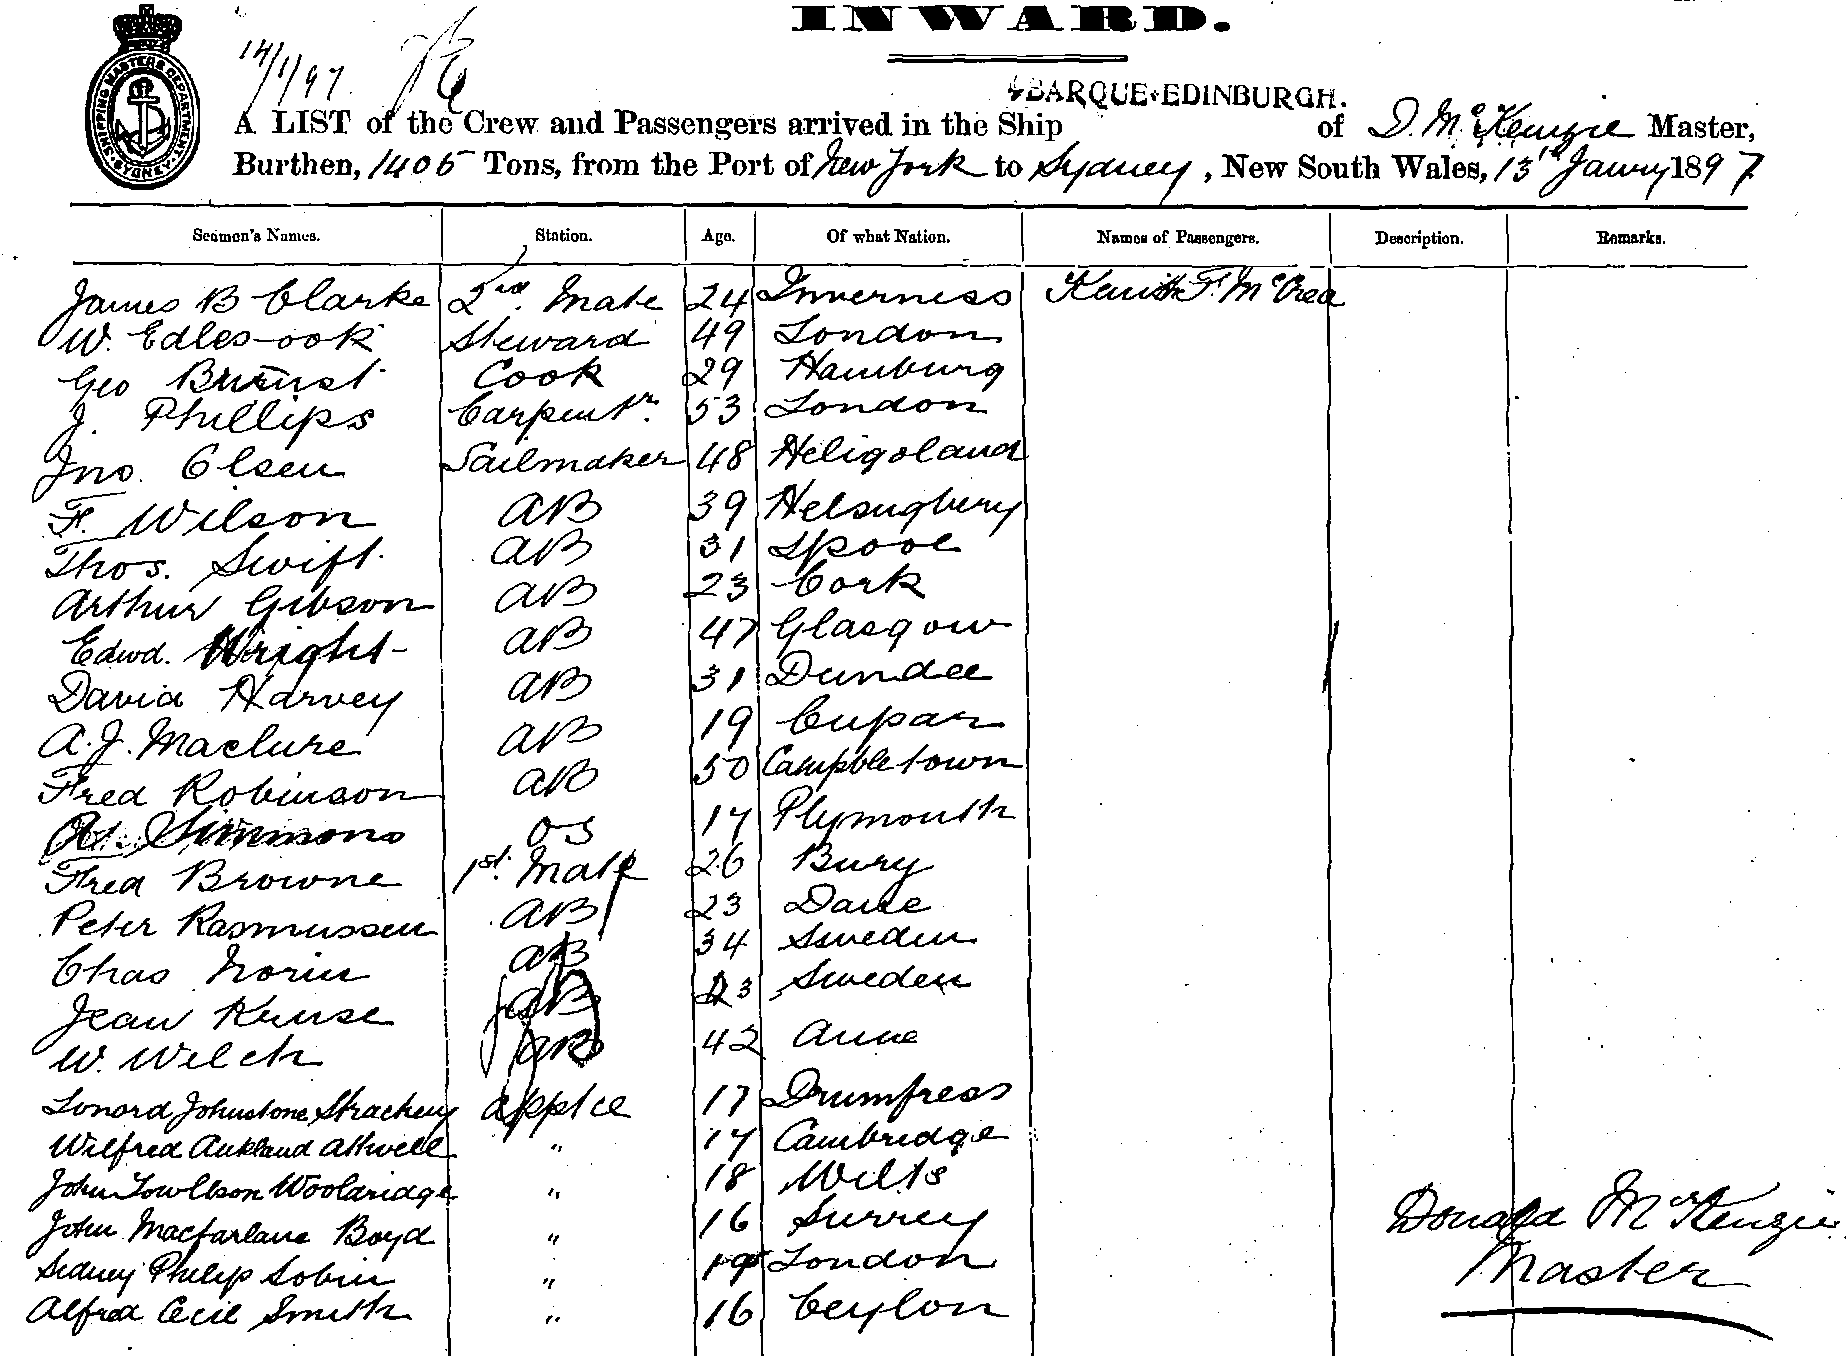 INWARD.
14/1/97
SHIPPING MASTERS DEPARTMENT SYDNEY
BARQUE EDINBURGH.
A LIST of the Crew and Passengers arrived in the Ship of D. McKenzie Master,
Burthen, 1405 Tons, from the Port of New York to Sydney, New South Wales, 13th Janry 1897
Seamen's Names. Station. Age. Of what Nation. Names of Passengers. Description. Remarks.
James B Clarke 2nd. Mate 24 Inverness F. McCrea
W. Edles-ook Steward 49 London
Geo Cook 29 Hamburg
J. Phillips Carpentr. 53 London
Jno. Olsen Sailmaker 48 Heligoland
F. Wilson AB 39
Thos. Swift AB 31 Lpool
Arthur Gibson AB 23 Cork
Edwd. Wright AB 47 Glasgow
David Harvey AB 31 Dundee
A. J. Maclure AB 19 Cupar
Fred Robinson AB 50 Campbletown
Simmons OS 17 Plymouth
Fred Browne 1st. Mate 26 Bury
Peter Rasmussen AB 23 Dane
Chas Norin AB 34 Sweden
Jean Kruse AB 23 Sweden
W. Welch AB 42
Lonord Johnstone Strachey appice 17 Drumfress
Wilfred Aukland Attwell " 17 Cambridge
John Wooldridge " 18 Wilts
John Macfarlane Boyd " 16 Surrey
Sidney Philip Lobin " London
Alfred Cecil Smith " 16 Ceylon
Donald McKenzie
Master